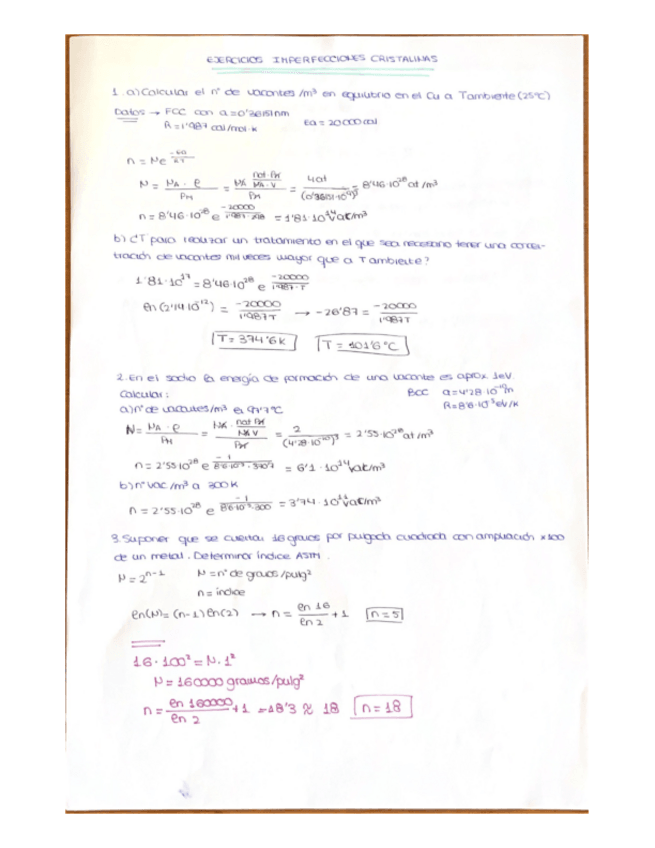 EJERCICIOS IMPERFECCIONES CRISTALINAS
1. a) Calcular el nº de vacantes /m³ en equilibrio en el Cu a Tambiente (25ºC)
Datos → FCC con a=0'36151nm
R=1'987 cal/mol·K Ea = 20000 cal
n = Ne^(-Ea/RT)
N = NA·ρ/PM = (NA · (nat·PM)/(NA·V))/PM = 4at/(0'3615·10⁻⁹)³ = 8'46·10²⁸ at/m³
n = 8'46·10²⁸ e^(-20000/(1'987·298)) = 1'81·10¹⁴ vac/m³
b) ¿T para realizar un tratamiento en el que sea necesario tener una concen-
tración de vacantes mil veces mayor que a Tambiente?
1'81·10¹⁷ = 8'46·10²⁸ e^(-20000/(1'987·T))
ln (2'14·10⁻¹²) = -20000/1'987T → -26'87 = -20000/1'987T
T = 374'6K T = 101'6ºC
2. En el sodio la energía de formación de una vacante es aprox. 1eV.
Calcular: BCC a=4'28·10⁻¹⁰m
R=8'6·10⁻⁵eV/K
a) nº de vacantes/m³ a 97'7ºC
N = NA·ρ/PM = (NA · (nat PM)/(NA V))/PM = 2/(4'28·10⁻¹⁰)³ = 2'55·10²⁸ at/m³
n = 2'55·10²⁸ e^(-1/(8'6·10⁻⁵·370'7)) = 6'1·10¹⁴ vac/m³
b) nº vac/m³ a 300K
n = 2'55·10²⁸ e^(-1/(8'6·10⁻⁵·300)) = 3'74·10¹¹ vac/m³
3. Suponer que se cuentan 16 granos por pulgada cuadrada con ampliación x100
de un metal. Determinar índice ASTM.
N = 2ⁿ⁻¹ N = nº de granos/pulg²
n = índice
ln(N) = (n-1) ln(2) → n = ln 16/ln 2 + 1 n = 5
16·100² = N·1²
N = 160000 granos/pulg²
n = ln 160000/ln 2 + 1 = 18'3 ≈ 18 n = 18